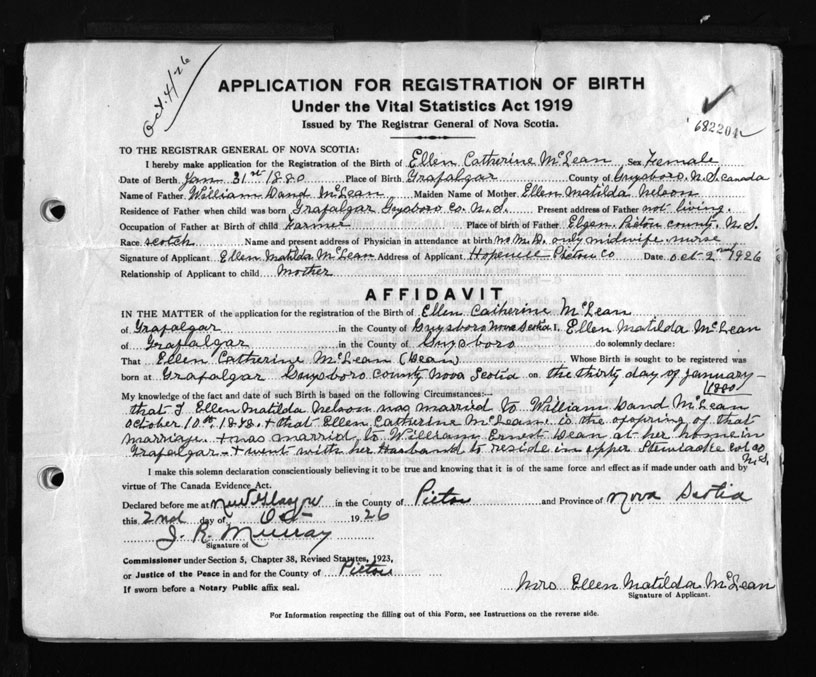 Oct. 4/26
APPLICATION FOR REGISTRATION OF BIRTH
Under the Vital Statistics Act 1919
Issued by The Registrar General of Nova Scotia.
682204
TO THE REGISTRAR GENERAL OF NOVA SCOTIA:
I hereby make application for the Registration of the Birth of Ellen Catherine McLean Sex Female
Date of Birth Jan 31st 1880 Place of Birth Grafalgar County of Guysboro. N.S. Canada
Name of Father William Dand McLean Maiden Name of Mother Ellen Matilda Nelson
Residence of Father when child was born Grafalgar Guysboro Co. N.S. Present address of Father not living.
Occupation of Father at Birth of child Farmer Place of birth of Father Elgen. Pictou county. N.S.
Race scotch Name and present address of Physician in attendance at birth no M.D. only midwife nurse
Signature of Applicant Ellen Matilda McLean Address of Applicant Hopewell Pictou Co Date Oct 2nd 1926
Relationship of Applicant to child Mother
AFFIDAVIT
IN THE MATTER of the application for the registration of the Birth of Ellen Catherine McLean
of Grafalgar in the County of Guysboro nova Scotia I, Ellen Matilda McLean
of Grafalgar in the County of Guysboro do solemnly declare:
That Ellen Catherine McLean (Dean) Whose Birth is sought to be registered was
born at Grafalgar Guysboro County Nova Scotia on the thirty day of January
1880
My knowledge of the fact and date of such Birth is based on the following Circumstances:—
that I Ellen Matilda Nelson was married to William Dand McLean
October 10th 1878. + that Ellen Catherine McLean. is the ofspring of that
marriage. + was married to William Ernest Dean at her home in
Grafalgar. + went with her Husband to reside in upper Col. Co
N.S.
I make this solemn declaration conscientiously believing it to be true and knowing that it is of the same force and effect as if made under oath and by
virtue of The Canada Evidence Act.
Declared before me at New Glasgow in the County of Pictou and Province of Nova Scotia
this 2nd day of Oct 1926
J. R. Murray
Signature of
Commissioner under Section 5, Chapter 38, Revised Statutes, 1923,
or Justice of the Peace in and for the County of Pictou
If sworn before a Notary Public affix seal.
Mrs Ellen Matilda McLean
Signature of Applicant.
For Information respecting the filling out of this Form, see Instructions on the reverse side.